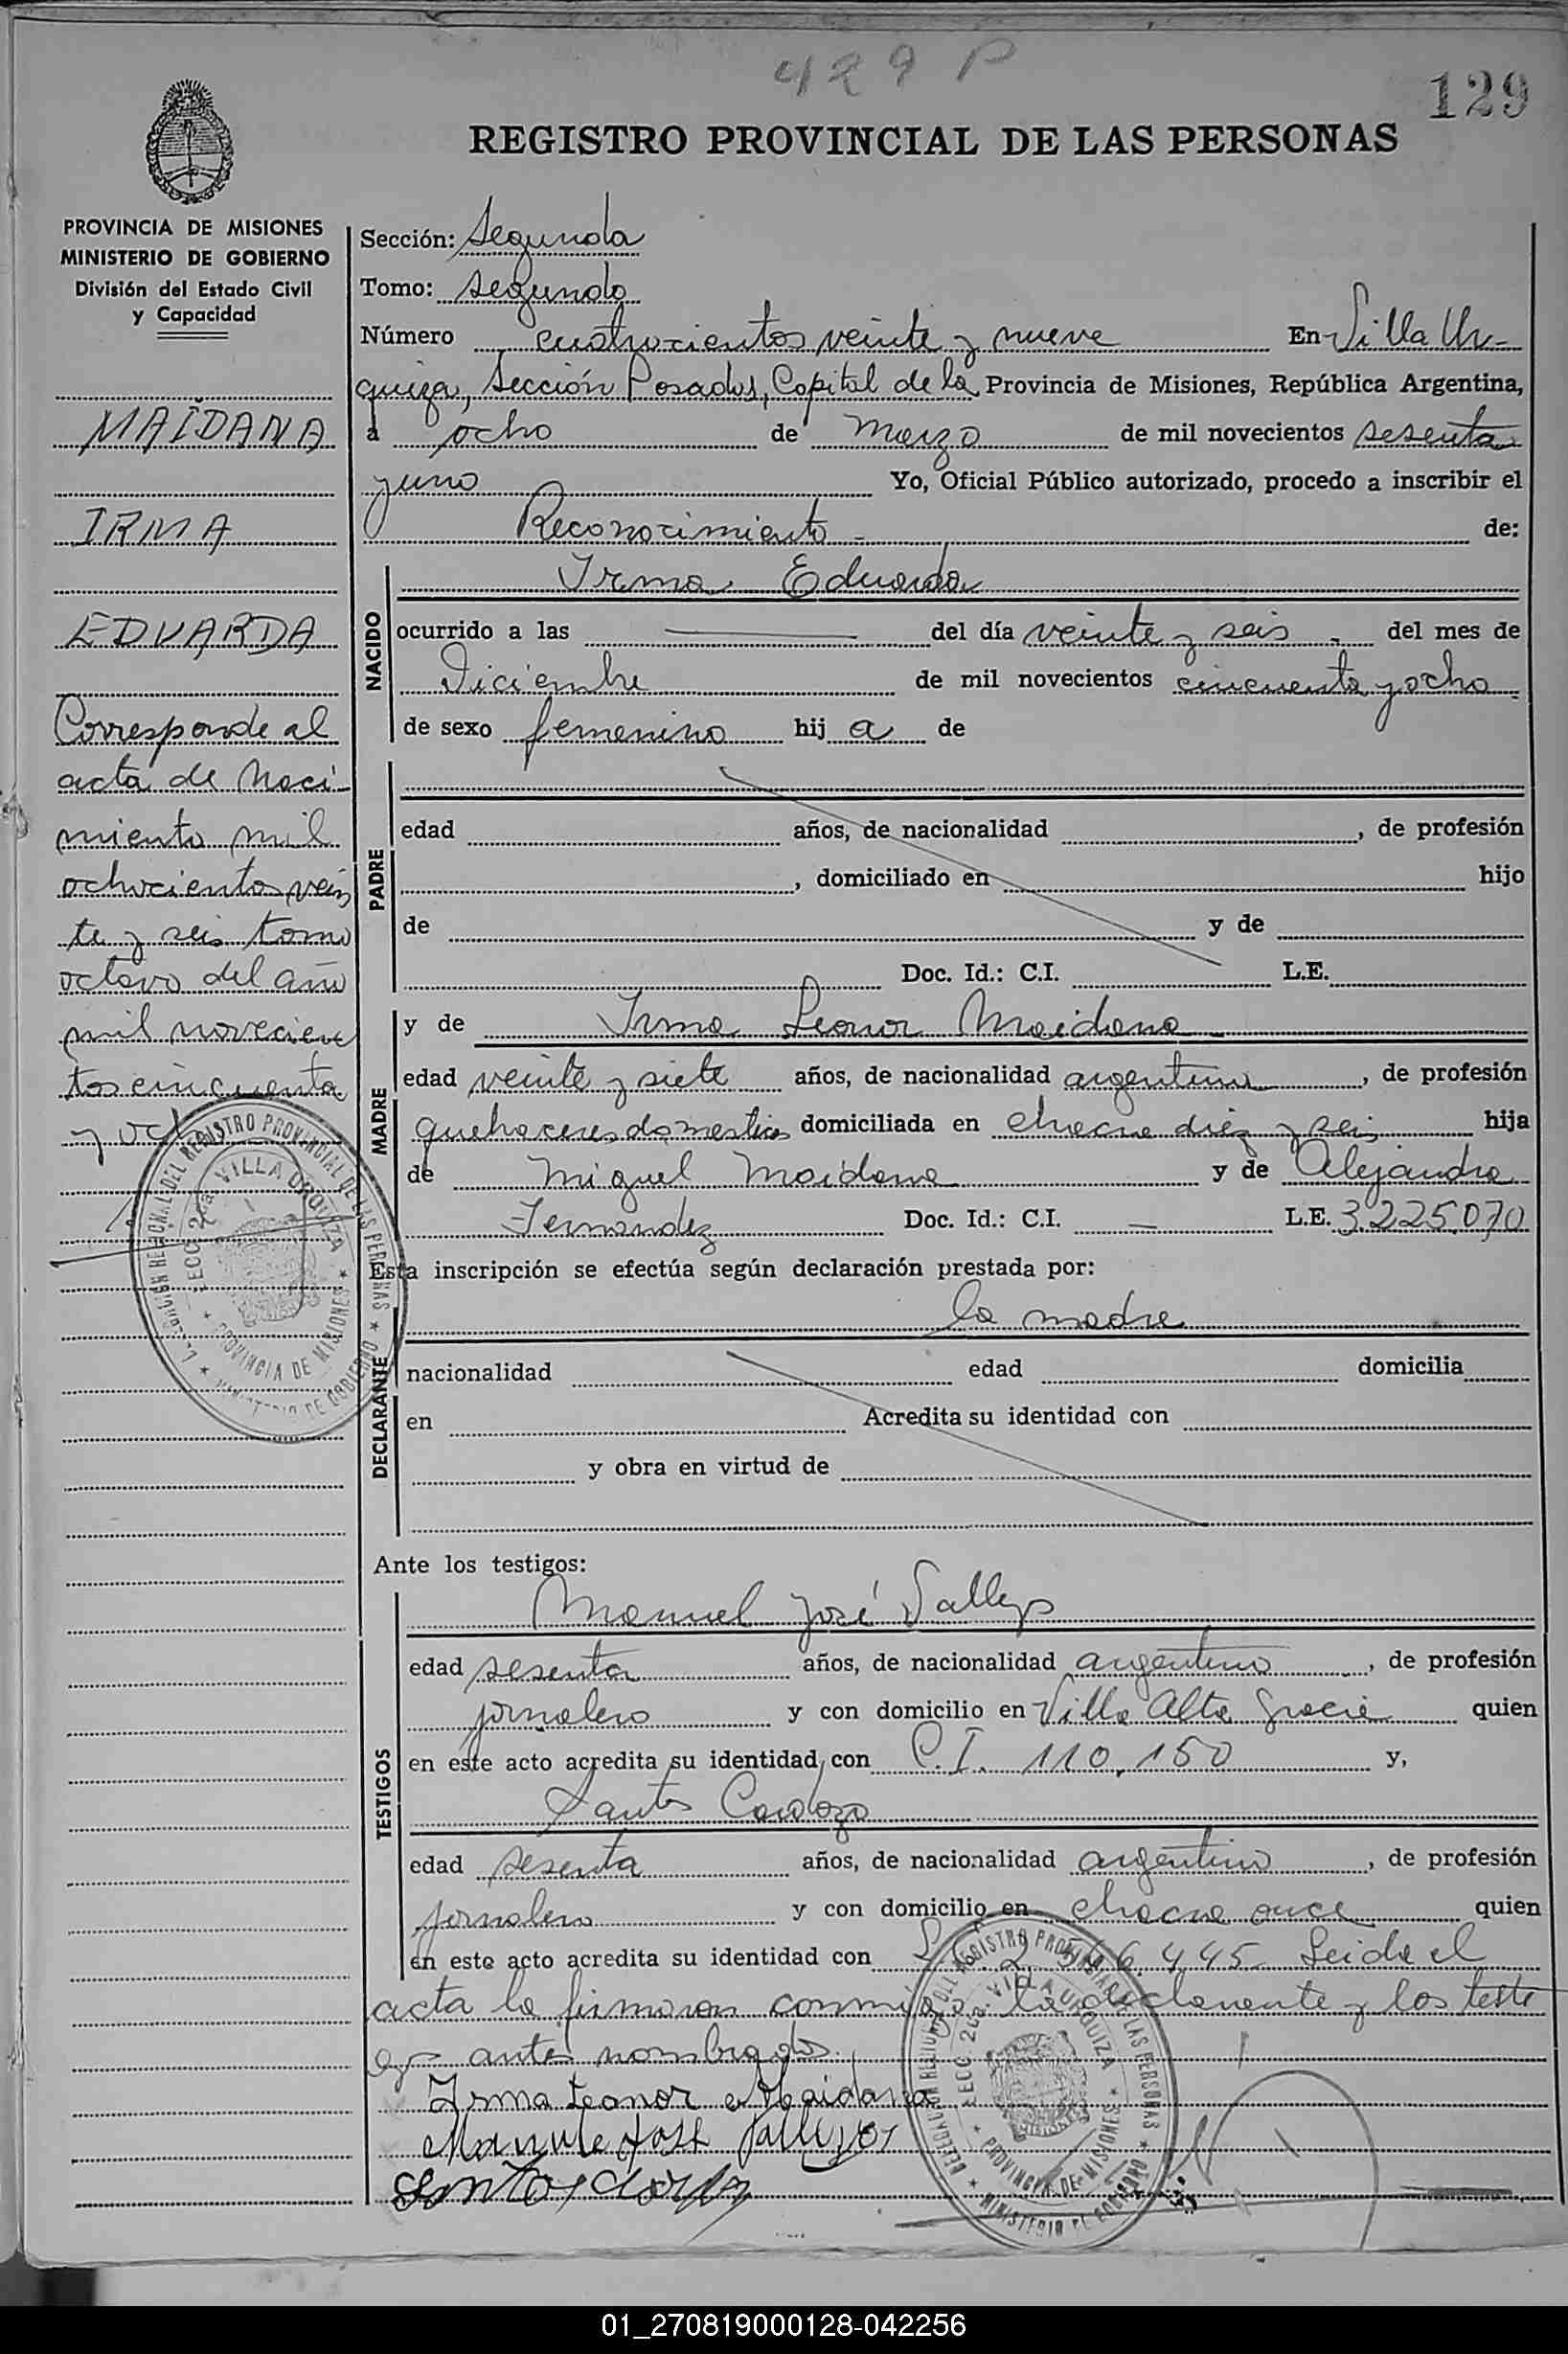 429 P
129
REGISTRO PROVINCIAL DE LAS PERSONAS
PROVINCIA DE MISIONES
MINISTERIO DE GOBIERNO
División del Estado Civil
y Capacidad
MAIDANA
IRMA
EDUARDA
Corresponde al
acta de Naci-
miento mil
ochocientos vein
te y seis tomo
octavo del año
mil novecien
tos cincuenta
y ocho
Sección: Segunda
Tomo: Segundo
Número cuatrocientos veinte y nueve En Villa Ur-
quiza, Sección Posadas, Capital de la Provincia de Misiones, República Argentina,
a ocho de Marzo de mil novecientos sesenta
y uno Yo, Oficial Público autorizado, procedo a inscribir el
Reconocimiento de:
NACIDO
Irma Eduarda
ocurrido a las del día veinte y seis del mes de
Diciembre de mil novecientos cincuenta y ocho
de sexo femenino hij a de
PADRE
edad años, de nacionalidad , de profesión
, domiciliado en hijo
de y de
Doc. Id.: C.I. L.E.
MADRE
y de Irma Leonor Maidana
edad veinte y siete años, de nacionalidad argentina , de profesión
quehaceres domesticos domiciliada en chacra diez y seis hija
de Miguel Maidana y de Alejandra
Fernandez Doc. Id.: C.I. — L.E. 3225.070
Esta inscripción se efectúa según declaración prestada por:
la madre
DECLARANTE
nacionalidad edad domicilia
en Acredita su identidad con
y obra en virtud de
Ante los testigos:
TESTIGOS
Manuel José Vallejos
edad sesenta años, de nacionalidad argentino , de profesión
jornalero y con domicilio en Villa Alta Gracia quien
en este acto acredita su identidad con C.I. 110.150 y,
Santos Cardozo
edad sesenta años, de nacionalidad argentino , de profesión
jornalero y con domicilio en chacra once quien
en este acto acredita su identidad con 2.546.445 Leida el
acta la firmaron conmigo la declarante y los testi
gos antes nombrados.
Irma Leonor Maidana
DELEGACIÓN REGIONAL DEL REGISTRO PROVINCIAL DE LAS PERSONAS
SECC. 2da. VILLA URQUIZA
PROVINCIA DE MISIONES
MINISTERIO DE GOBIERNO
DELEGACIÓN REGIONAL DEL REGISTRO PROVINCIAL DE LAS PERSONAS
SECC. 2da. VILLA URQUIZA
PROVINCIA DE MISIONES
MINISTERIO DE GOBIERNO
01_270819000128-042256